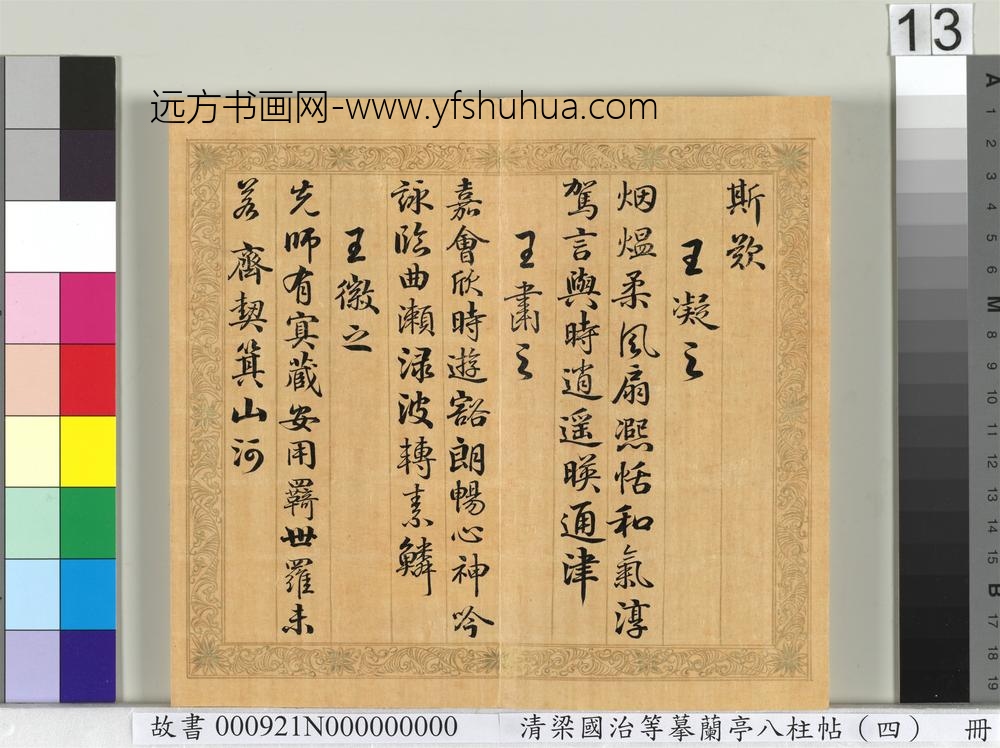 13
远方书画网-www.yfshuhua.com
斯歟
王凝之
烟煴柔風扇凞恬和氣淳
駕言與時逍遥暎通津
王肅之
嘉會欣時遊豁朗暢心神吟
詠臨曲瀬渌波轉素鱗
王徽之
先師有寘蔵安用羇世羅未
若齊契箕山河
A 1 2 3 4 5 6 M 8 9 10 11 12 13 14 15 B 17 18 19
故書 000921N000000000 清梁國治等摹蘭亭八柱帖（四） 冊